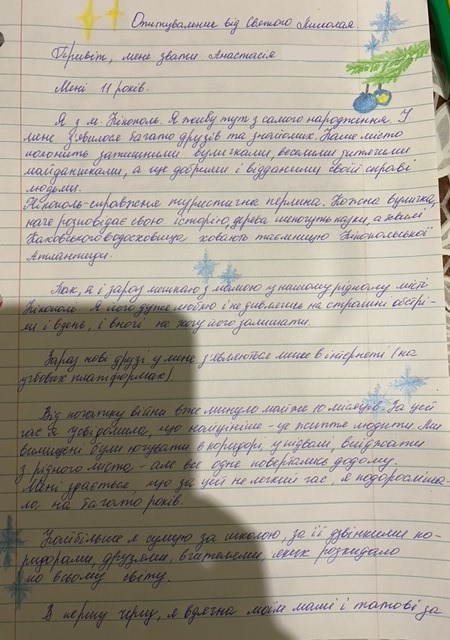 Опитування від Святого Миколая.
Привіт, мене звати Анастасія
Мені 11 років.
Я з м. Нікополь. Я живу тут з самого народження. У
мене з'явилося багато друзів та знайомих. Наше місто
полонить затишними вуличками, веселими дитячими
майданчиками, а ще добрими і відданими своїй справі
людьми.
Нікополь-справжня туристична перлина. Кожна вуличка,
наче розповідає свою історію, дерева шепочуть казки, а хвилі
Каховського водосховища ховають таємницю Нікопольської
Атлантиди.
Так, я і зараз мешкаю з мамою у нашому рідному місті
Нікополі. Я його дуже люблю і не дивлячись на страшні обстрі-
ли і вдень, і вночі не хочу його залишати.
Зараз нові друзі у мене з'являються лише в інтернеті (на
учбових платформах).
Від початку війни вже минуло майже 10 місяців. За цей
час я усвідомила, що найцінніше - це життя людини. Ми
вимушені були ночувати в коридорі, у підвалі, виїжджати
з рідного міста - але все одно повертались додому.
Мені здається, що за цей не легкий час, я подорослиша-
ла, на багато років.
Найбільше я сумую за школою, за її дзвінкими ко-
ридорами, друзями, вчителями, яких розкидало
по всьому світу.
В першу чергу, я вдячна моїм мамі і татові за